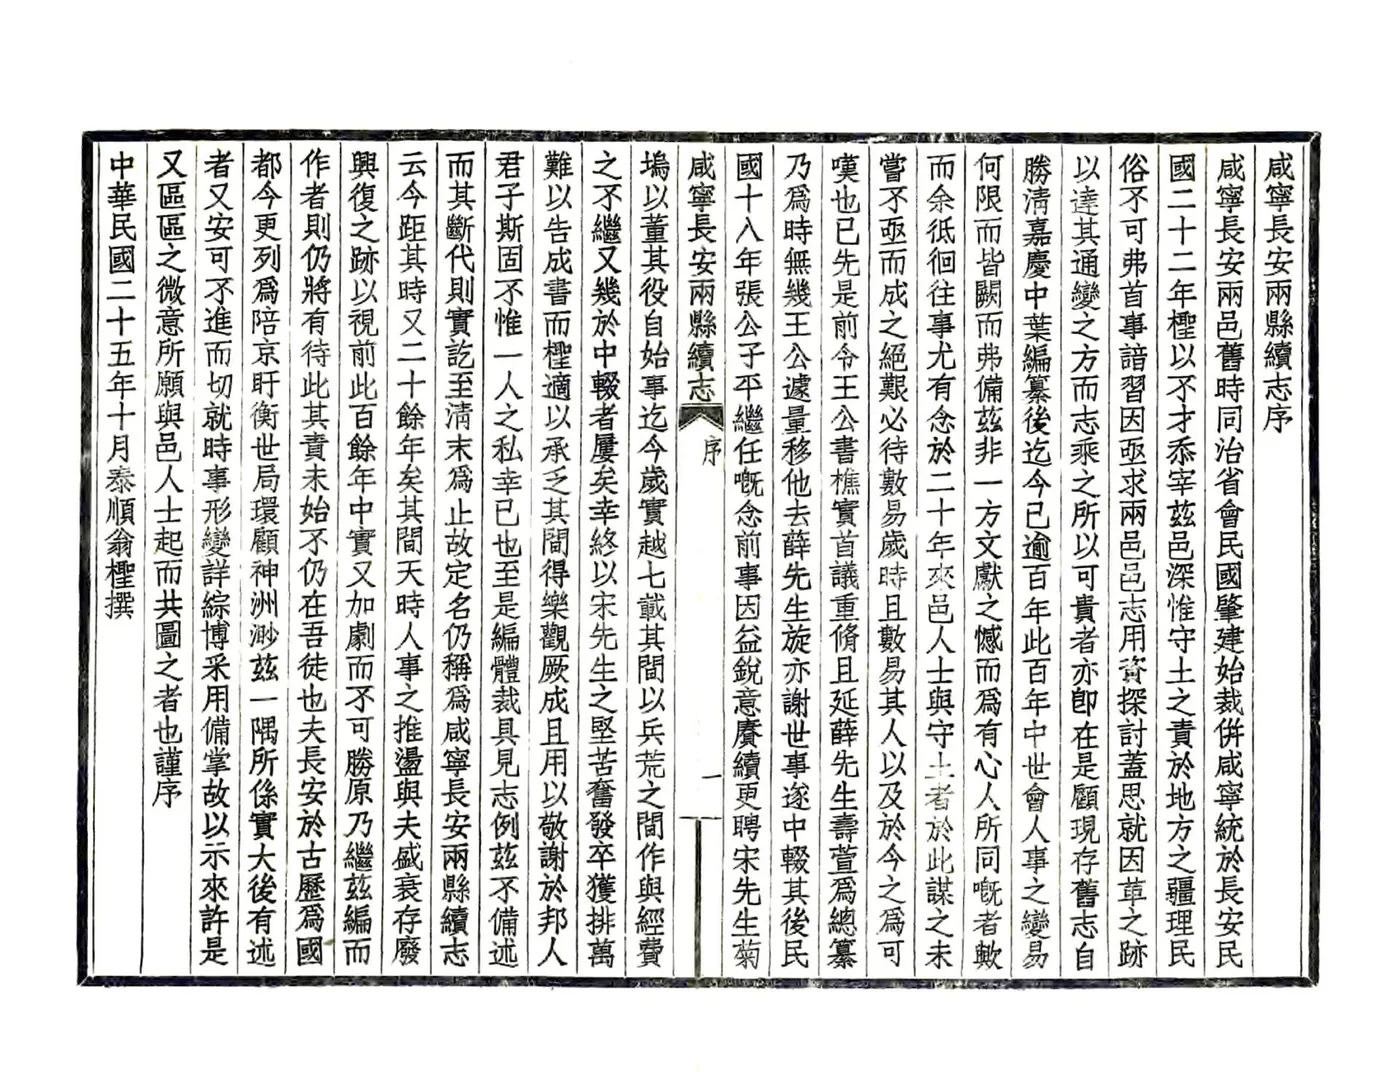 咸寧長安兩縣續志序
咸寧長安兩邑舊時同治省會民國肇建始裁併咸寧統於長安民
國二十二年檉以不才忝宰茲邑深惟守土之責於地方之疆理民
俗不可弗首事諳習因亟求兩邑邑志用資探討蓋思就因革之跡
以達其通變之方而志乘之所以可貴者亦卽在是顧現存舊志自
勝淸嘉慶中葉編纂後迄今已逾百年此百年中世會人事之變易
何限而皆闕而弗備茲非一方文獻之憾而爲有心人所同嘅者歟
而余徂徊往事尤有念於二十年來邑人士與守土者於此謀之未
嘗不亟而成之絕艱必待數易歲時且數易其人以及於今之爲可
嘆也已先是前令王公書樵實首議重脩且延薛先生壽萱爲總纂
乃爲時無幾王公遽量移他去薛先生旋亦謝世事遂中輟其後民
國十八年張公子平繼任嘅念前事因益銳意賡續更聘宋先生菊
咸寧長安兩縣續志 序 一
塢以董其役自始事迄今歲實越七載其間以兵荒之間作與經費
之不繼又幾於中輟者屢矣幸終以宋先生之堅苦奮發卒獲排萬
難以告成書而檉適以承乏其間得樂觀厥成且用以敬謝於邦人
君子斯固不惟一人之私幸已也至是編體裁具見志例茲不備述
而其斷代則實訖至淸末爲止故定名仍稱爲咸寧長安兩縣續志
云今距其時又二十餘年矣其間天時人事之推盪與夫盛衰存廢
興復之跡以視前此百餘年中實又加劇而不可勝原乃繼茲編而
作者則仍將有待此其責未始不仍在吾徒也夫長安於古歷爲國
都今更列爲陪京盱衡世局環顧神洲渺茲一隅所係實大後有述
者又安可不進而切就時事形變詳綜博采用備掌故以示來許是
又區區之微意所願與邑人士起而共圖之者也謹序
中華民國二十五年十月泰順翁檉撰